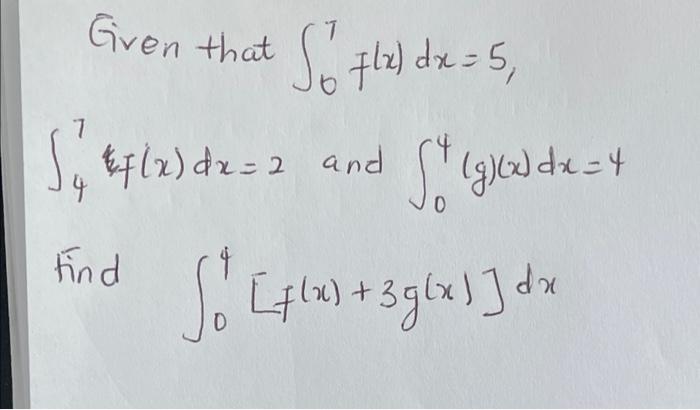 Given that ∫₀⁷ f(x) dx = 5,
∫₄⁷ f(x) dx = 2 and ∫₀⁴ (g)(x) dx = 4
find ∫₀⁴ [f(x) + 3g(x)] dx